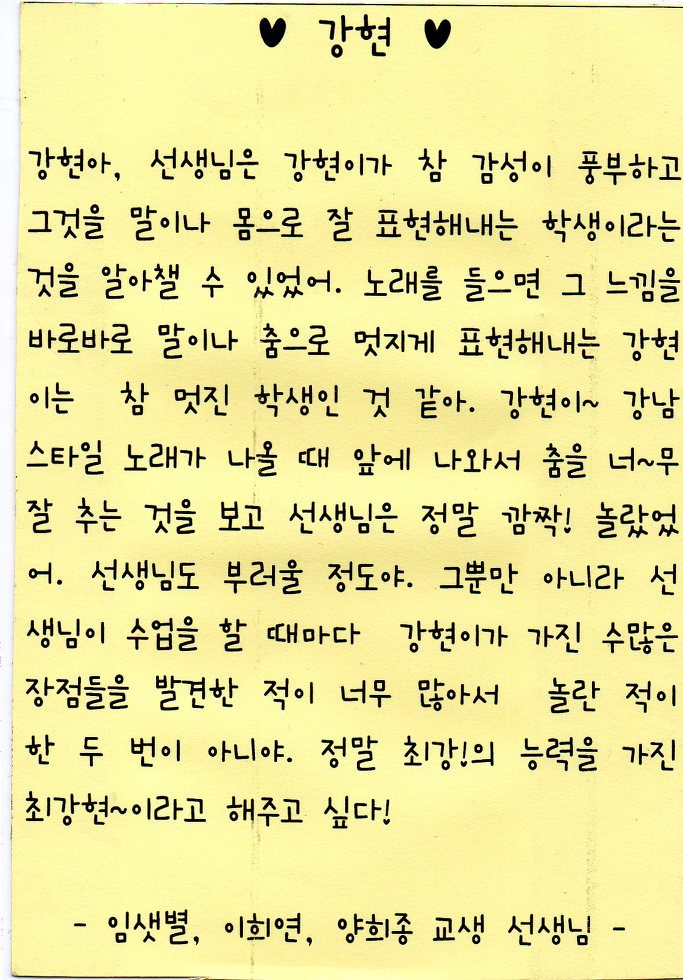 ♥ 강현 ♥
강현아, 선생님은 강현이가 참 감성이 풍부하고
그것을 말이나 몸으로 잘 표현해내는 학생이라는
것을 알아챌 수 있었어. 노래를 들으면 그 느낌을
바로바로 말이나 춤으로 멋지게 표현해내는 강현
이는 참 멋진 학생인 것 같아. 강현이~ 강남
스타일 노래가 나올 때 앞에 나와서 춤을 너~무
잘 추는 것을 보고 선생님은 정말 깜짝! 놀랐었
어. 선생님도 부러울 정도야. 그뿐만 아니라 선
생님이 수업을 할 때마다 강현이가 가진 수많은
장점들을 발견한 적이 너무 많아서 놀란 적이
한 두 번이 아니야. 정말 최강!의 능력을 가진
최강현~이라고 해주고 싶다!
- 임샛별, 이희연, 양희종 교생 선생님 -